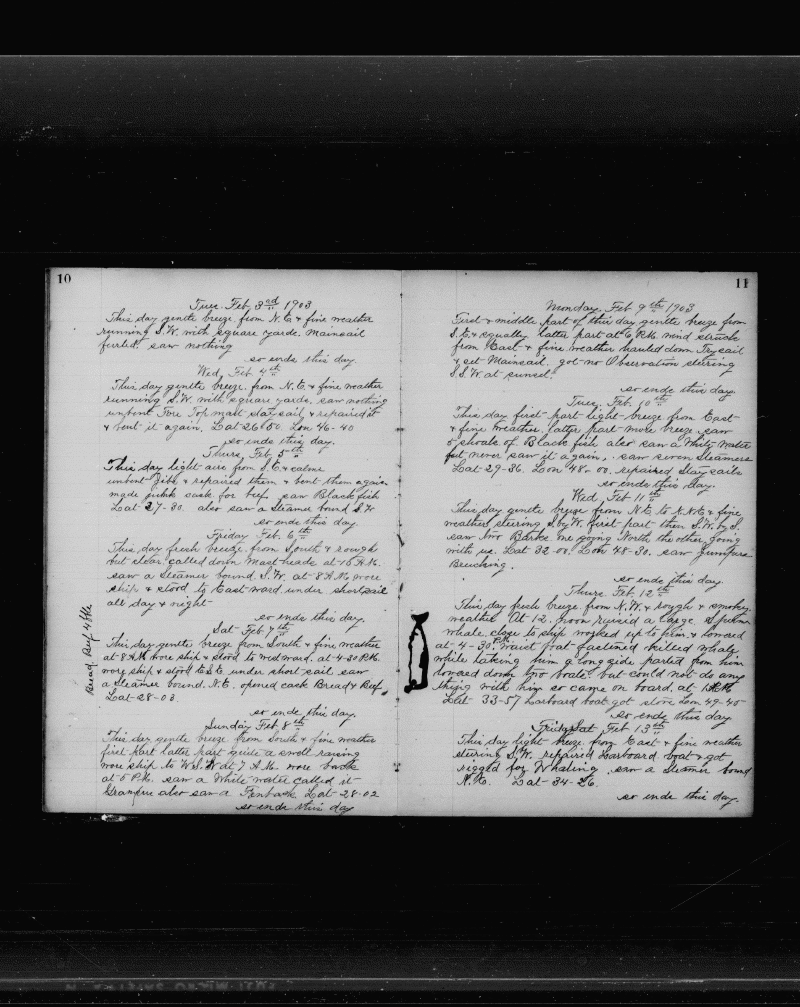 10
Tues. Feb 3rd 1903
This day gentle breeze from N.E. & fine weather
running S.W. with square yards. Mainsail
furled. saw nothing
so ends this day
Wed, Feb 4th
This day gentle breeze from N.E. & fine weather
running S.W. with square yards, saw nothing
unbent Fore Top mast stay sail & repaired it
& bent it again, Lat 26-50. Lon 46-40
so ends this day.
Thurs, Feb 5th
This day light airs from S.E. & calms
unbent jibs & repaired them & bent them again
made junk cask for beef, saw Blackfish
Lat 27-30. also saw a Steamer bound S.W
so ends this day.
Friday Feb. 6th
This day fresh breeze from South & rough
but clear, called down Mast heads at 10 A.M.
saw a Steamer bound S.W. at 8 A.M wore
ship & stood to East ward under short sail
all day & night
so ends this day.
Sat Feb 7th
Bread, Beef
This day gentle breeze from South & fine weather
at 8 A.M. wore ship & stood to westward. at 4-30 P.M.
wore ship & stood to S.E. under short sail saw
a Steamer bound. N.E. opened cask Bread & Beef
Lat 28-03.
so ends this day.
Sunday Feb 8th
This day gentle breeze from South & fine weather
first part latter part quite a swell raising
wore ship to W.S.W at 7 A.M. wore back
at 5 P.M. saw a White water called it
Grampus also saw a Finback Lat 28-02
so ends this day
11
Monday. Feb 9th 1903
First & middle part of this day gentle breeze from
S.E. & squally latter part at 6 P.M. wind struck
from East & fine weather hauled down Trysail
& set Mainsail, got no Observation steering
S.S.W at sunset.
so ends this day.
Tues, Feb. 10th
This day first part light breeze from East
& fine weather, latter part more breeze saw
shoals of Black fish also saw a White Water
but never saw it again, saw seven Steamers
Lat 29-36. Lon 48-00. repaired Stay sails
so ends this day.
Wed, Feb 11th
This day gentle breeze from N.E. to N.N.E & fine
weather steering S. by W. first part then S.W. by S.
saw two Barks one going North the other going
with us. Lat 32-00. Lon 48-30. saw Jumpers
Breaching.
so ends this day.
Thurs Feb. 12th
This day fresh breeze from N.W. & rough & smokey
weather At 12. noon raised a large Sperm
whale close to ship worked up to him & lowered
at 4-30 P.M. Waist boat fastened killed whale
while taking him alongside parted from him
lowered down two boats but could not do any
thing with him so came on board at
Lat 33-57 Larboard boat got stove Lon 49-45
so ends this day
Feb 13th
This day light breeze from East & fine weather
steering S.W. repaired Larboard boat & got
rigged for Whaling. saw a Steamer bound
N.E. Lat 34-26.
so ends this day.